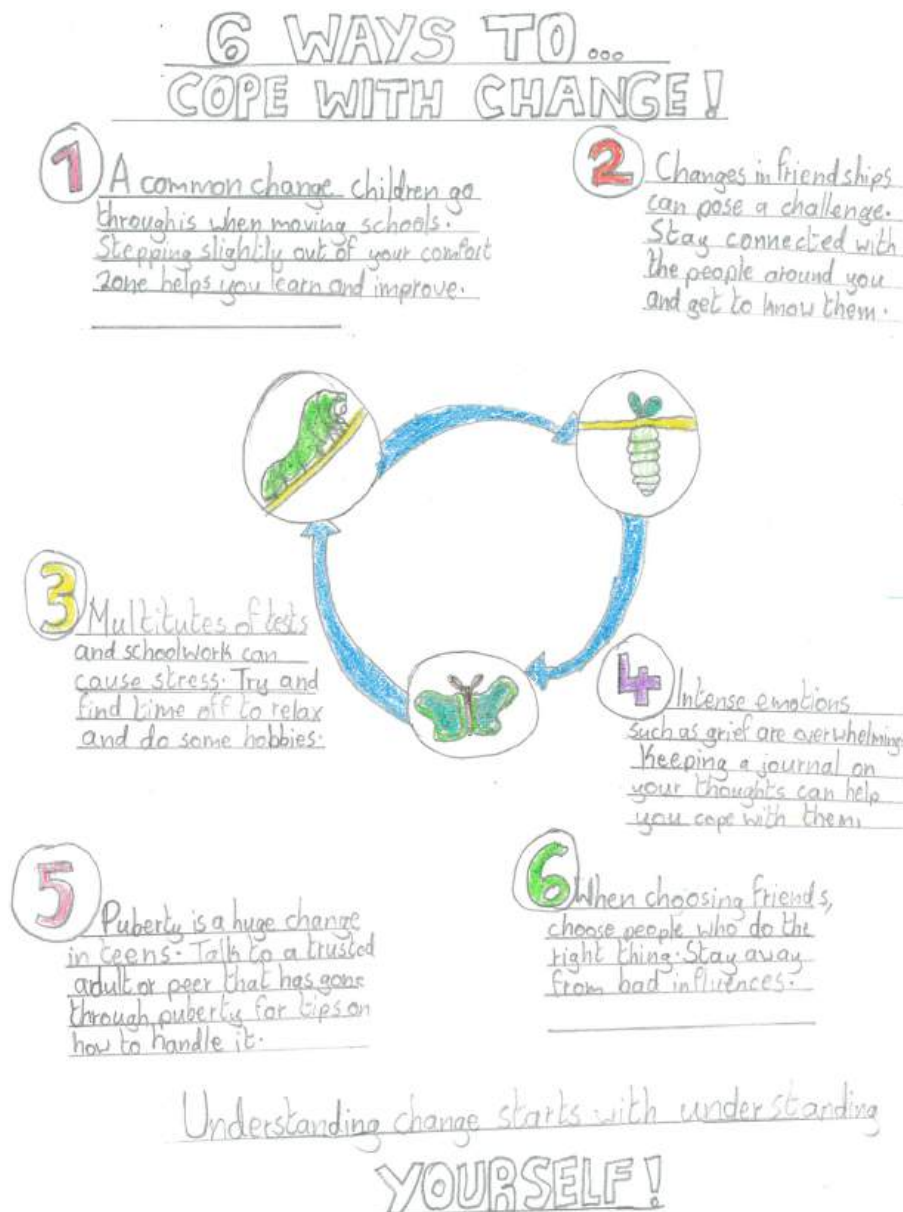 6 WAYS TO...
COPE WITH CHANGE!
1
A common change children go
through is when moving schools.
Stepping slightly out of your comfort
zone helps you learn and improve.
2
Changes in friendships
can pose a challenge.
Stay connected with
the people around you
and get to know them.
3
Multitutes of tests
and schoolwork can
cause stress. Try and
find time off to relax
and do some hobbies.
4
Intense emotions
such as grief are overwhelming
Keeping a journal on
your thoughts can help
you cope with them.
5
Puberty is a huge change
in teens. Talk to a trusted
adult or peer that has gone
through puberty for tips on
how to handle it.
6
When choosing friends,
choose people who do the
right thing. Stay away
from bad influences.
Understanding change starts with understanding
YOURSELF!